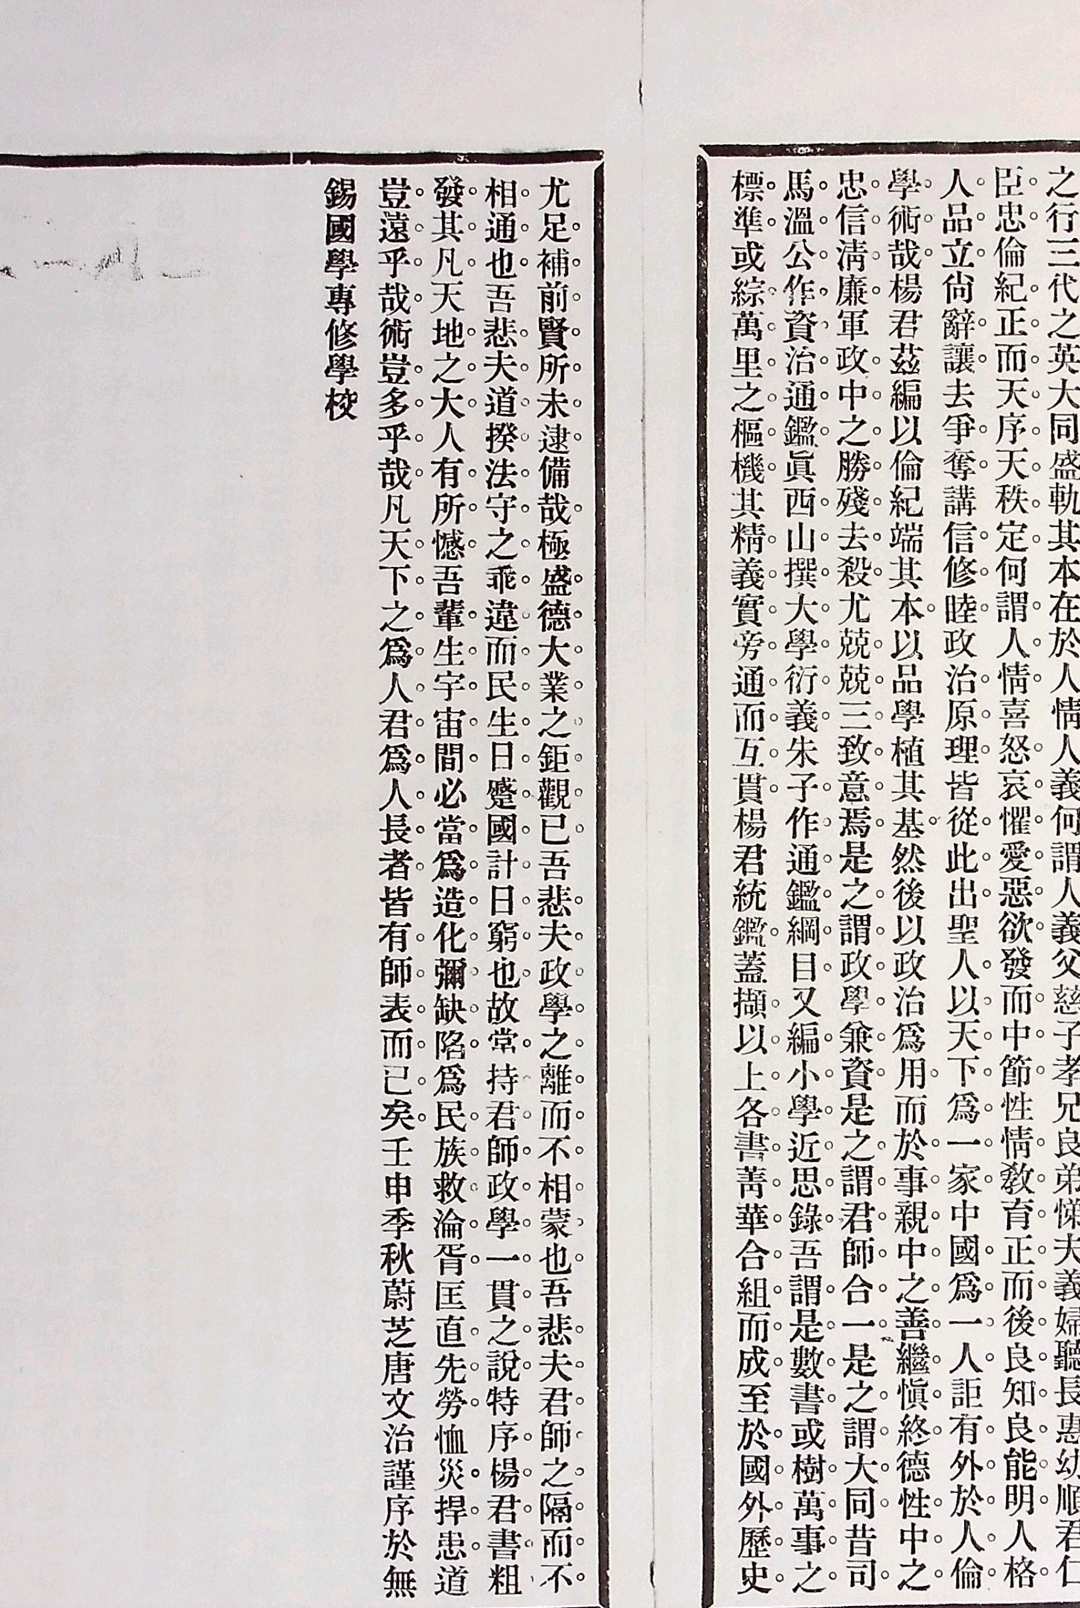 之行三代之英大同盛軌其本在於人情人義何謂人義父慈子孝兄良弟悌夫義婦聽長惠幼順君仁
臣忠倫紀正而天序天秩定何謂人情喜怒哀懼愛惡欲發而中節性情教育正而後良知良能明人格
人品立尚辭讓去爭奪講信修睦政治原理皆從此出聖人以天下爲一家中國爲一人詎有外於人倫
學術哉楊君茲編以倫紀端其本以品學植其基然後以政治爲用而於事親中之善繼愼終德性中之
忠信淸廉軍政中之勝殘去殺尤兢兢三致意焉是之謂政學兼資是之謂君師合一是之謂大同昔司
馬溫公作資治通鑑眞西山撰大學衍義朱子作通鑑綱目又編小學近思錄吾謂是數書或樹萬事之
標準或綜萬里之樞機其精義實旁通而互貫楊君統鑑蓋擷以上各書菁華合組而成至於國外歷史
尤足補前賢所未逮備哉極盛德大業之鉅觀已吾悲夫政學之離而不相蒙也吾悲夫君師之隔而不
相通也吾悲夫道揆法守之乖違而民生日蹙國計日窮也故常持君師政學一貫之說特序楊君書粗
發其凡天地之大人有所憾吾輩生宇宙間必當爲造化彌缺陷爲民族救淪胥匡直先勞恤災捍患道
豈遠乎哉術豈多乎哉凡天下之爲人君爲人長者皆有師表而已矣壬申季秋蔚芝唐文治謹序於無
錫國學專修學校